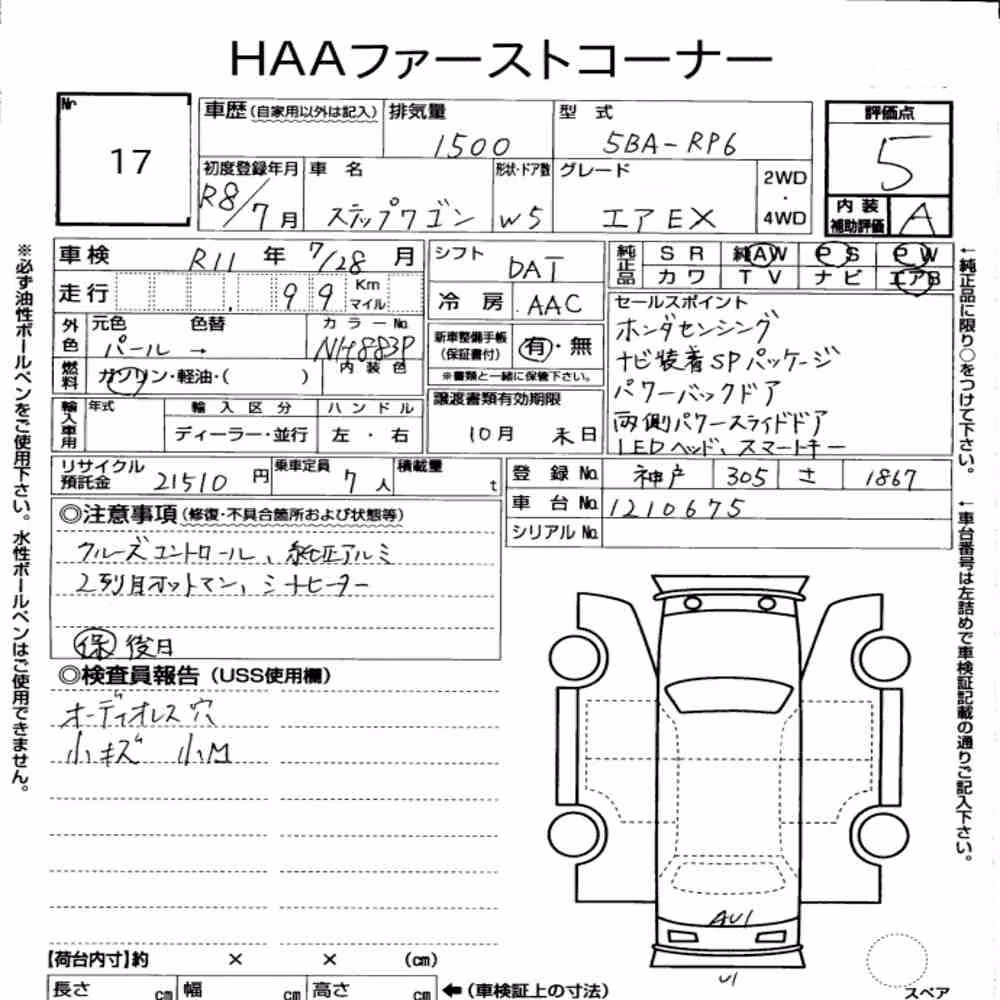 HAAファーストコーナー
Nr 17
車歴(自家用以外は記入) 排気量 1500 型式 5BA-RP6 評価点 5
初度登録年月 R8/7月 車名 ステップワゴン 形状・ドア数 W5 グレード エアEX 2WD・4WD 内装補助評価 A
車検 R11年 7/28月 シフト DAT 純正品 SR 純AW PS PW
走行 99 Km マイル 冷房 AAC カワ TV ナビ エアB
外色 元色 パール → 色替 カラーNo. NH883P 新車整備手帳(保証書付) 有・無
※書類と一緒に保管下さい。
燃料 ガソリン・軽油・( ) 内装色
輸入車用 年式 輸入区分 ディーラー・並行 ハンドル 左・右
譲渡書類有効期限 10月末日
セールスポイント
ホンダセンシング
ナビ装着SPパッケージ
パワーバックドア
両側パワースライドドア
LEDヘッド、スマートキー
リサイクル預託金 21510円 乗車定員 7人 積載量 t
登録No. 神戸 305 さ 1867
車台No. 1210675
シリアルNo.
◎注意事項(修復・不具合箇所および状態等)
クルーズコントロール、純正アルミ
2列目オットマン、シートヒーター
保 後日
◎検査員報告(USS使用欄)
オーディオレス穴
小キズ 小M
AU1
U1
スペア
【荷台内寸】約 × × (cm)
長さ cm 幅 cm 高さ cm ←(車検証上の寸法)
※必ず油性ボールペンをご使用下さい。水性ボールペンはご使用できません。
←純正品に限り○をつけて下さい。
←車台番号は左詰めで車検証記載の通りご記入下さい。